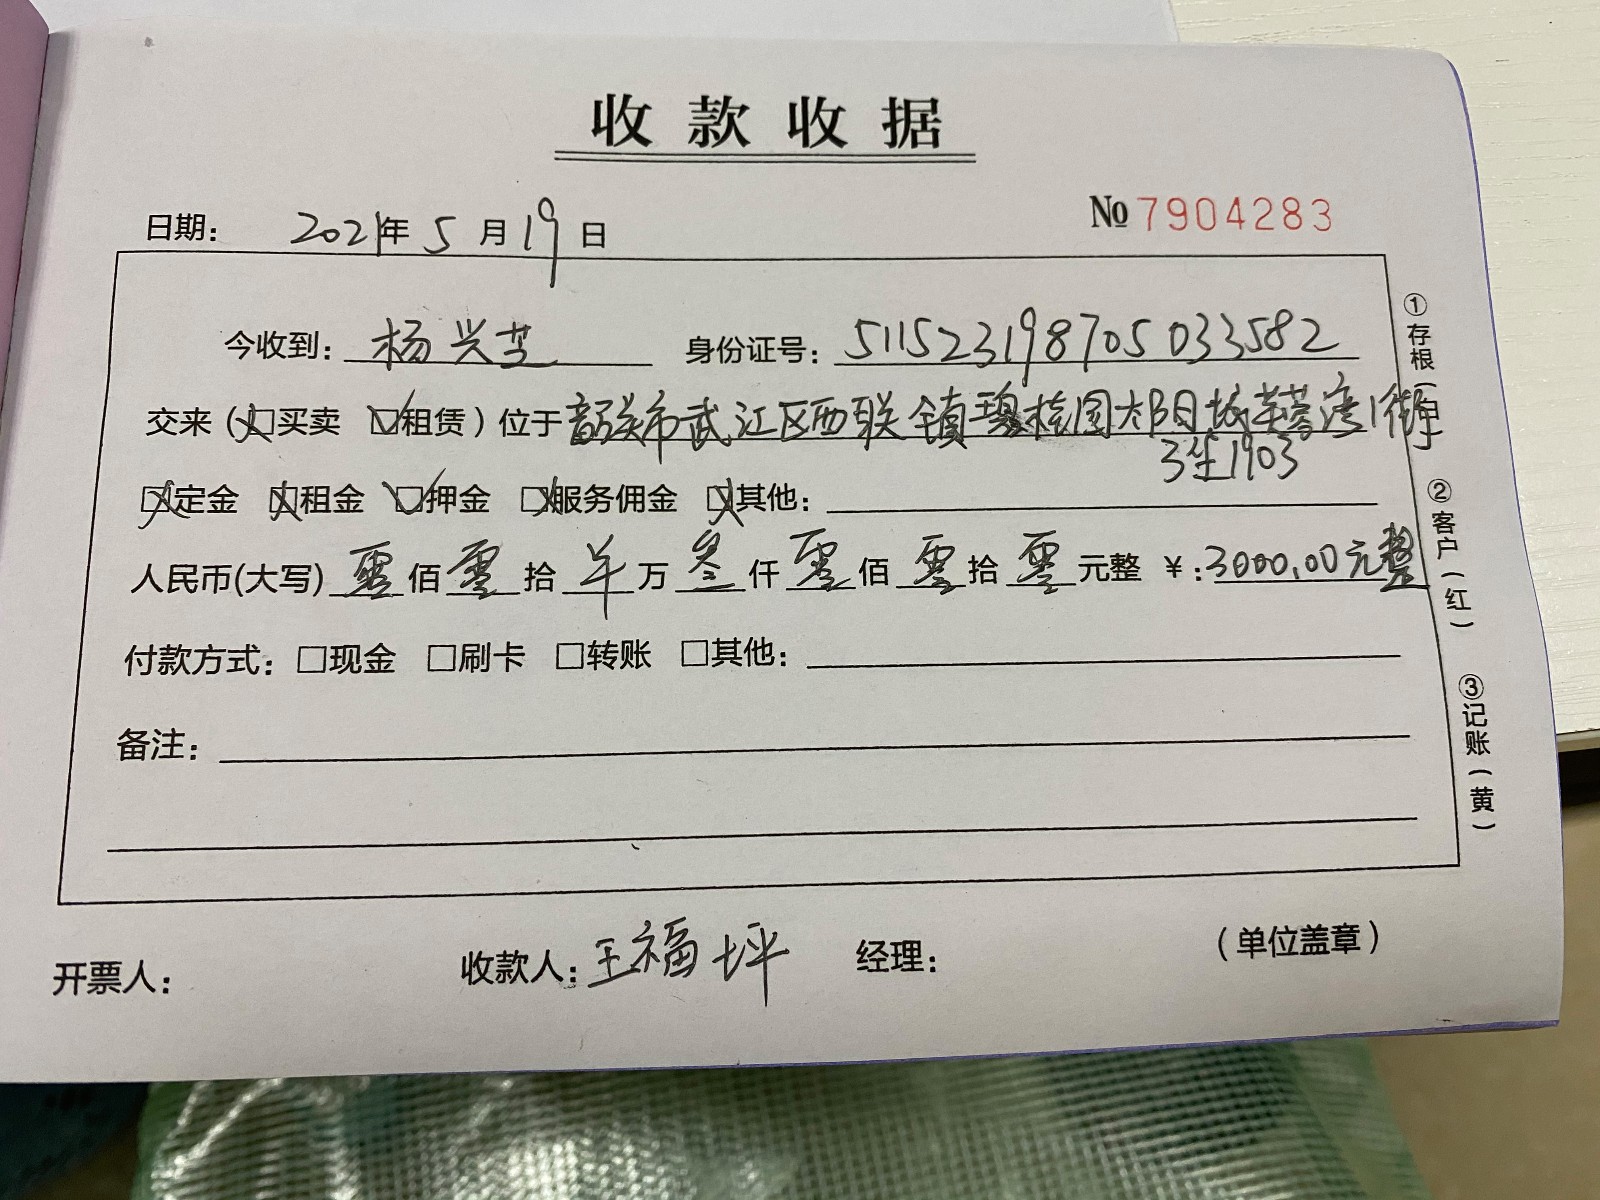 收款收据
日期: 2021年5月19日
№ 7904283
今收到: 杨兴芝 身份证号: 511523198705033582
交来(☒买卖 ☑租赁)位于韶关市武江区西联镇碧桂园太阳城芙蓉湾1街
3座1903
☒定金 ☒租金 ☑押金 ☒服务佣金 ☒其他:
人民币(大写) 零佰零拾 万叁仟零佰零拾零元整 ¥:3000.00元整
付款方式: □现金 □刷卡 □转账 □其他:
备注:
开票人: 收款人: 王福坪 经理: (单位盖章)
①存根(白)
②客户(红)
③记账(黄)